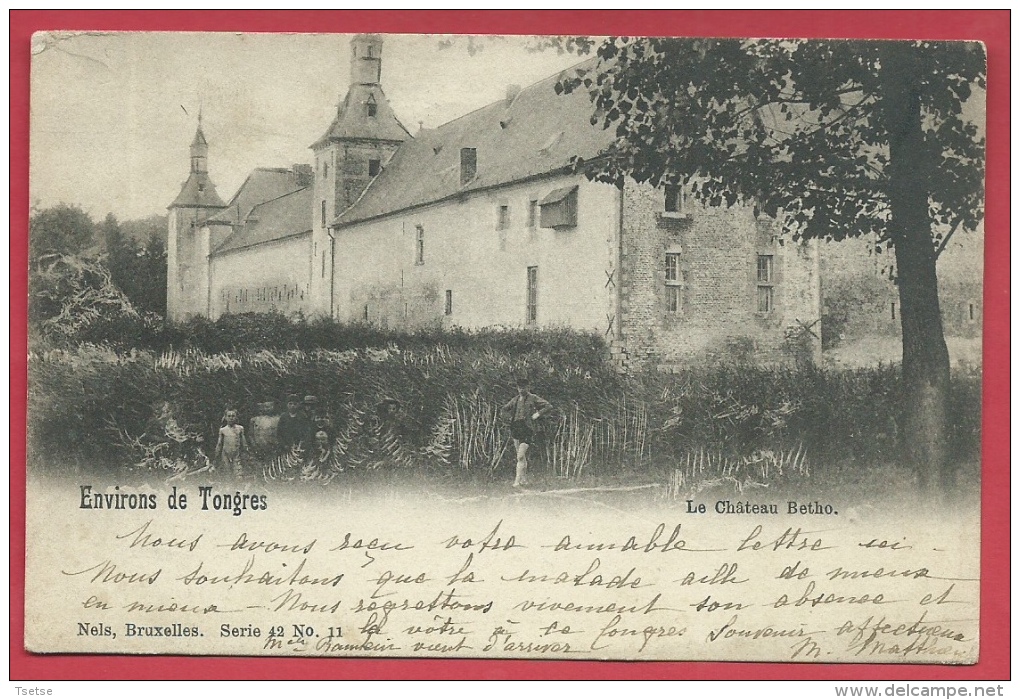 Environs de Tongres
Le Château Betho.
Nous avons reçu votre aimable lettre ici -
Nous souhaitons que la malade aille de mieux
en mieux - Nous regrettons vivement son absence et
Nels, Bruxelles. Serie 42 No. 11
la vôtre à ce Congrès Souvenir affectueux
Melle vient d'arriver M.
Tsetse
www.delcampe.net